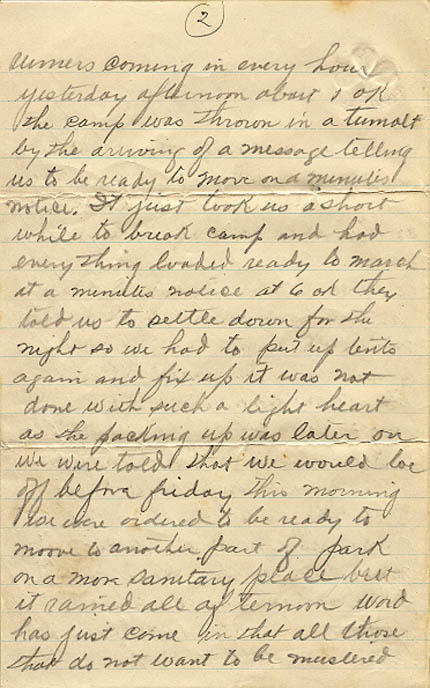 2
rumers coming in every hour
yesterday afternoon about 1 ok
the camp was thrown in a tumalt
by the arriving of a message telling
us to be ready to move on a minutes
notice. It just took us a short
while to break camp and had
every thing loaded ready to march
at a minutes notice at 6 ok they
told us to settle down for the
night so we had to put up tents
again and fix up it was not
done with such a light heart
as the packing up was later on
we were told that we would be
off before friday this morning
we were ordered to be ready to
moove to another part of park
on a more sanitary place but
it rained all afternoon word
has just come in that all those
that do not want to be mustered